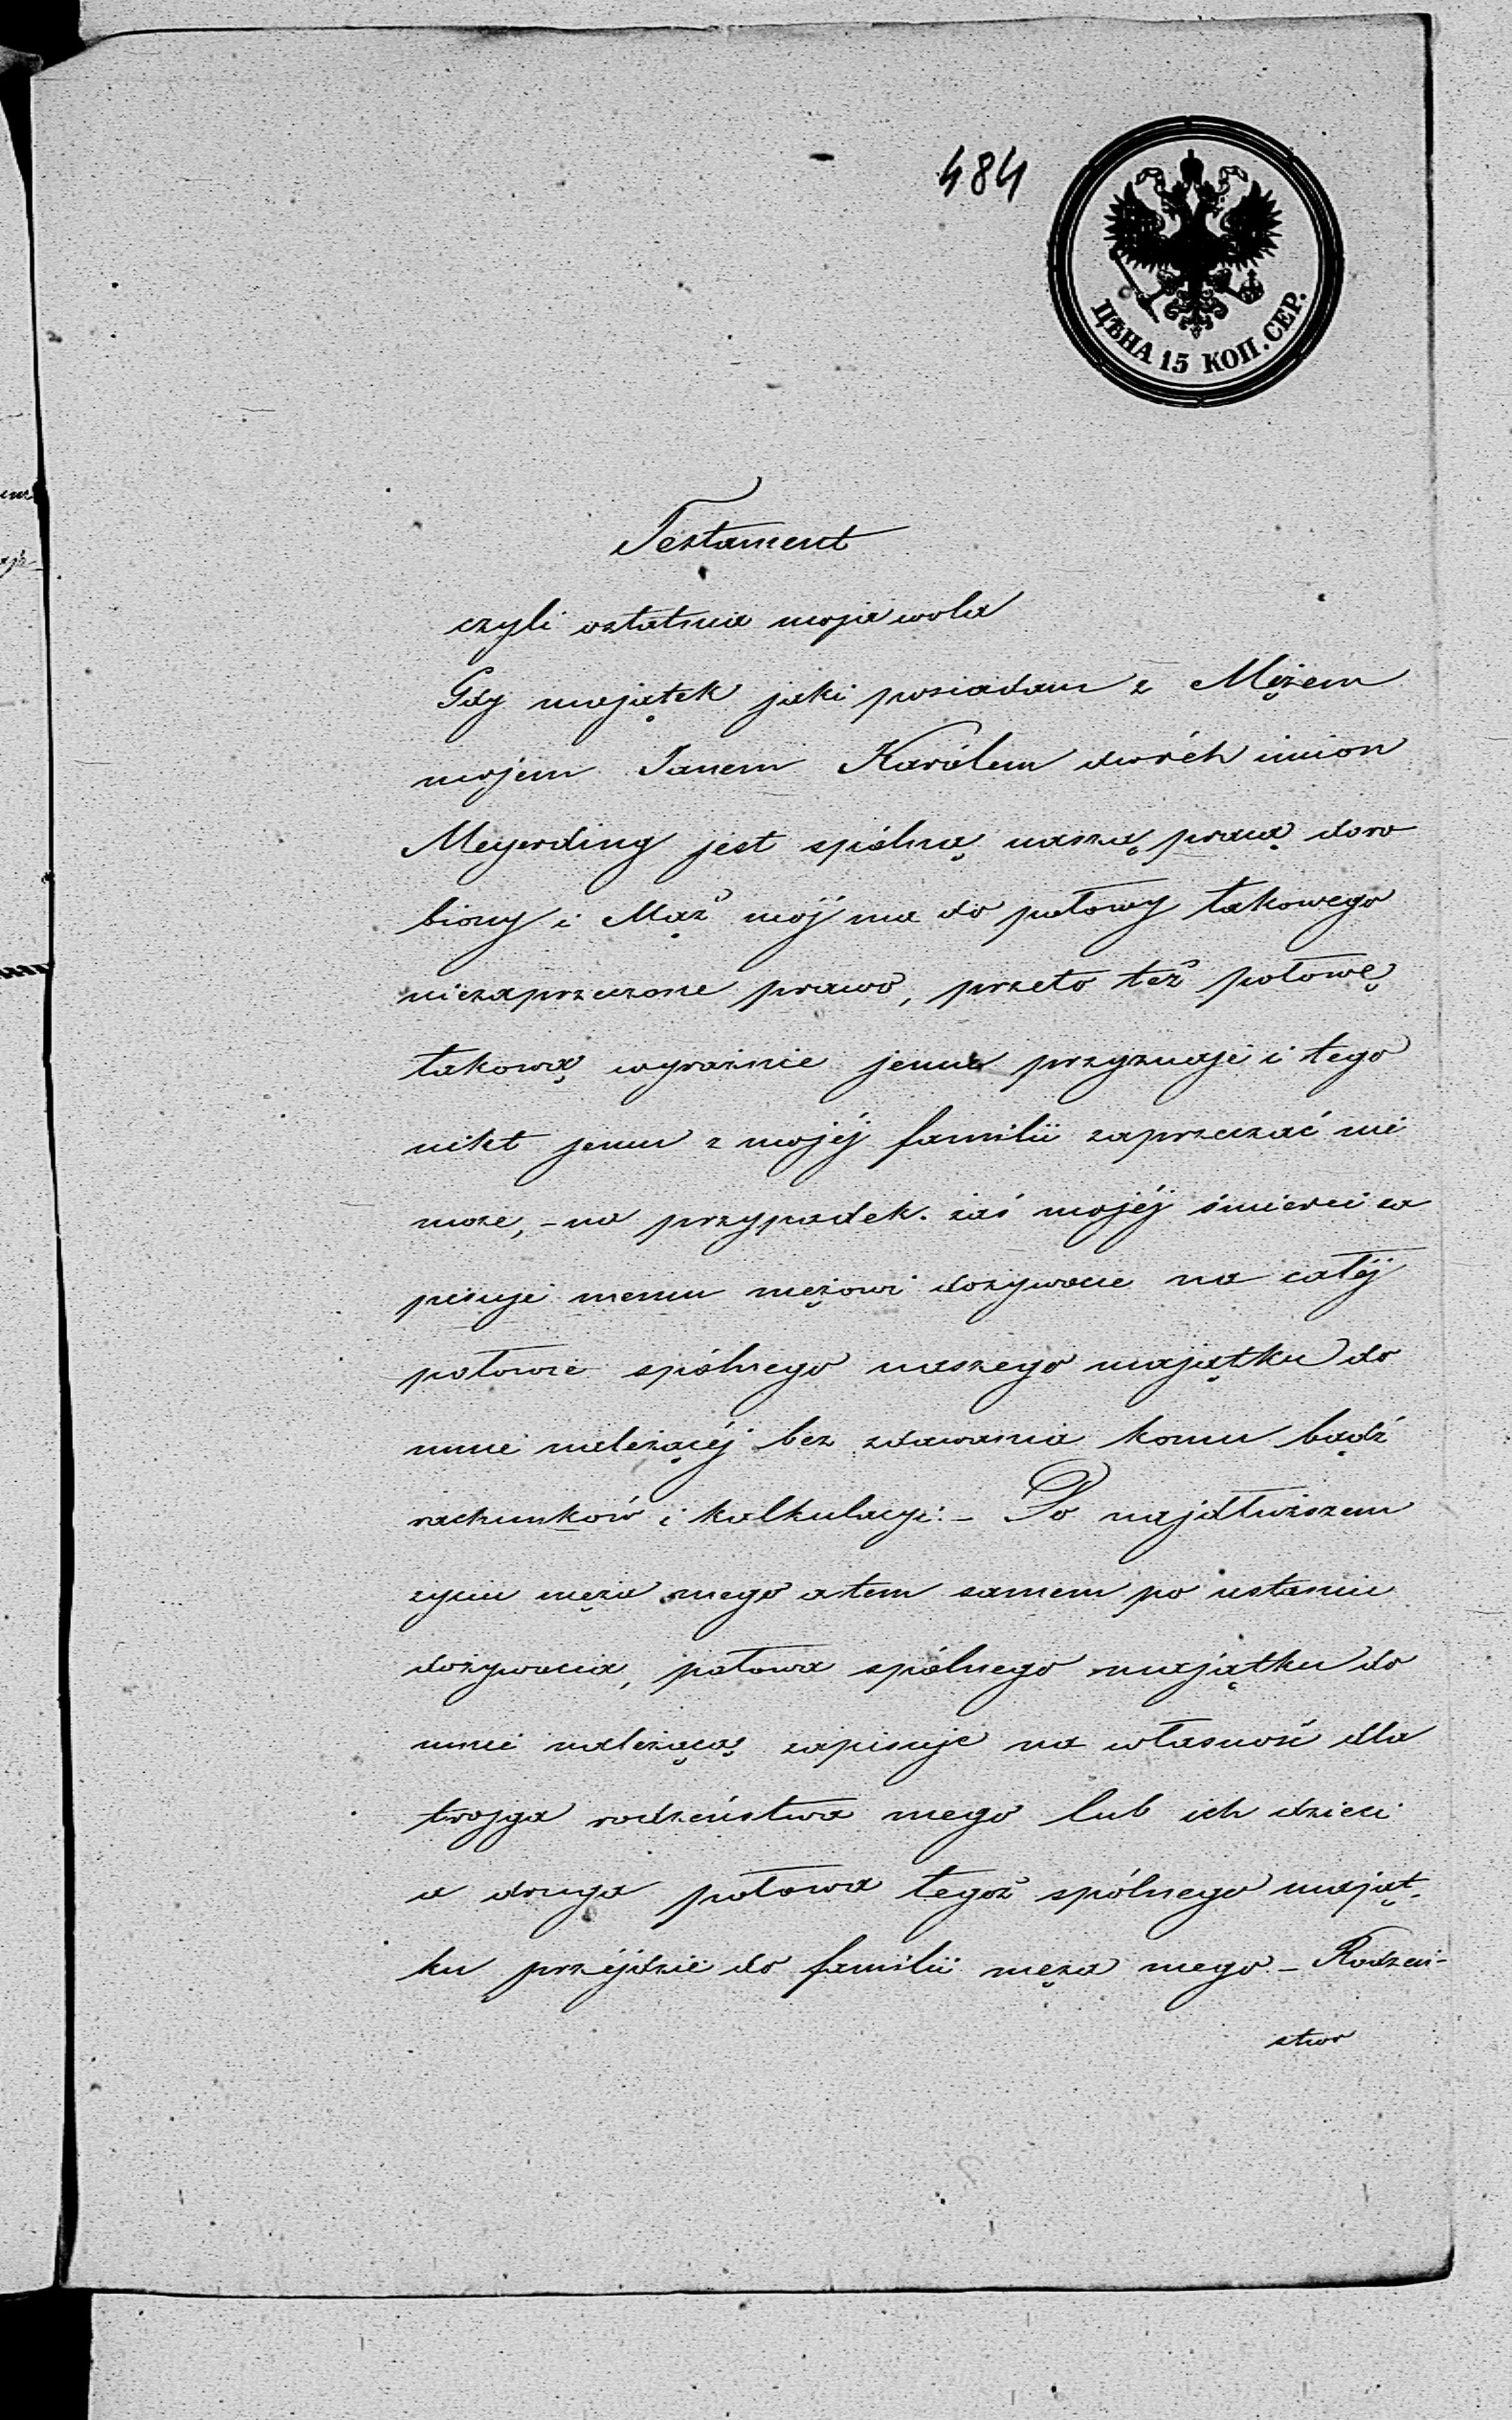 484
ЦѢНА 15 КОП. СЕР.
Testament
czyli ostatnia moja wola
Gdy majątek jaki posiadam z Mężem
mojem Janem Karólem dwóch imion
Meyerding jest spólną naszą pracą doro
biony i Mąż mój ma do połowy takowego
niezaprzeczone prawo, przeto też połowę
takową wyraznie jemu przyznaje i tego
nikt jemu z mojéj familii zaprzeczać nie
moze, – na przypadek zaś mojéj śmierci za
pisuje memu mężowi dozywocie na całéj
połowie spólnego naszego majątku do
mnie należącéj bez zdawania komu bądź
rachunków i kalkulacyi: – Po najdłuższem
zyciu męza mego a tem samem po ustaniu
dozywocia, połowa spólnego majątku do
mnie należącą zapisuje na własność dla
trojga rodzeństwa mego lub ich dzieci
a druga połowa tegoż spólnego mająt-
ku przéjdzie do familii męza mego – Rodzeń-
stwo